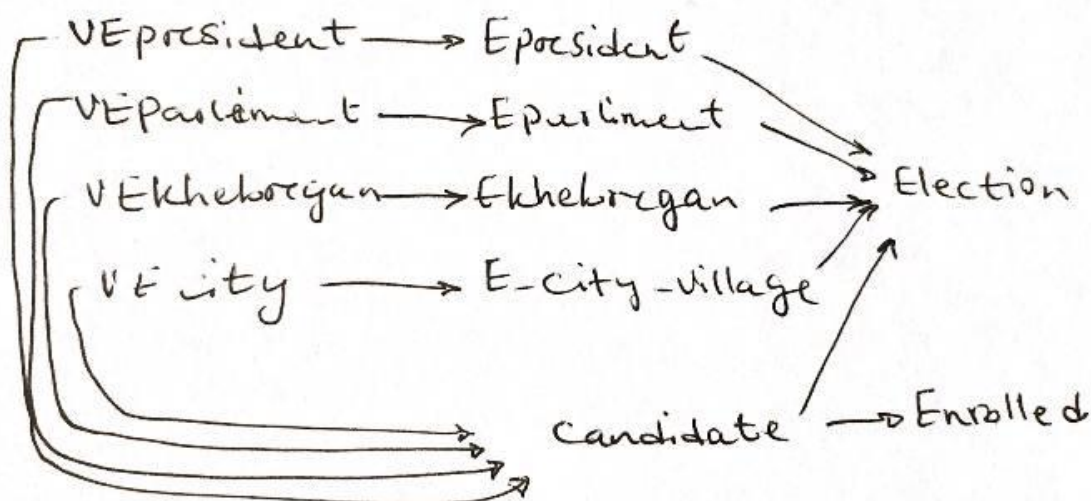 VEpresident → Epresident
VEParlement → Eparliment
VEkhebregan → Ekhebregan
Election
VE city → E-City-Village
Candidate → Enrolled